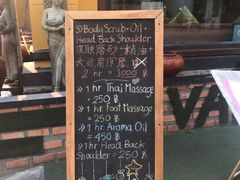 5) Body Scrub + Oil +
Head Back Shoulder
皮肤磨砂+精油+
2 hr = 1000 ฿
» 1 hr Thai Massage
= 250 ฿
» 1 hr Foot Massage
= 250 ฿
» 1 hr Aroma Oil
= 450 ฿
» 1 hr Head Back
Shoulder = 250 ฿